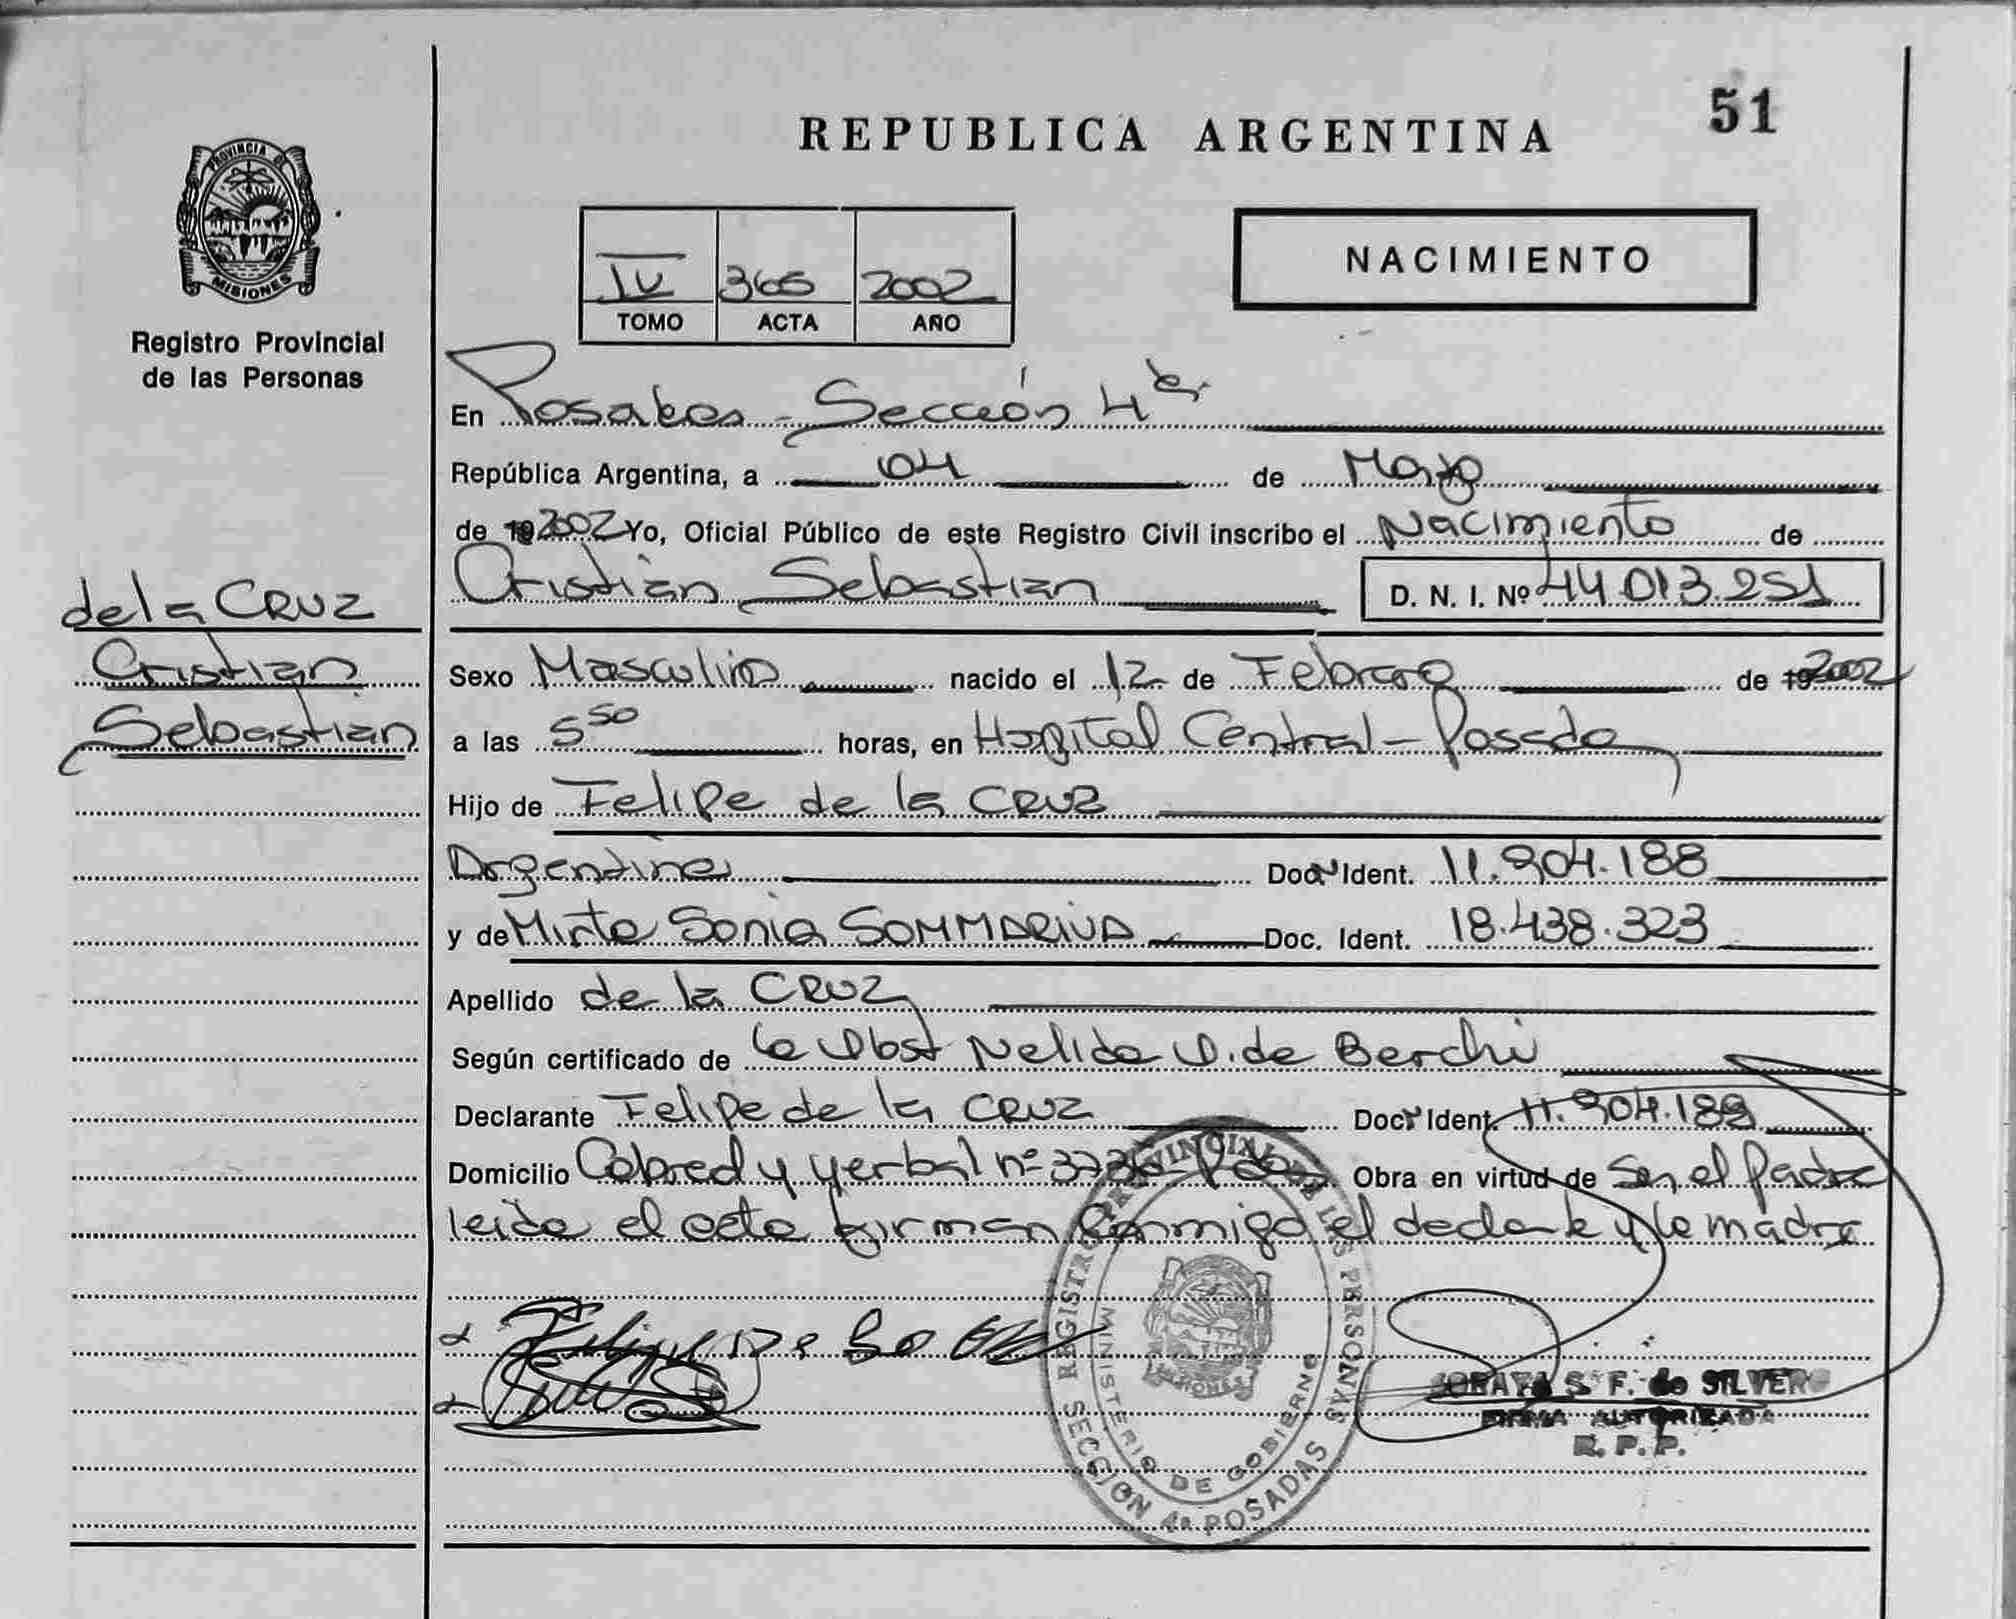 51
REPUBLICA ARGENTINA
PROVINCIA DE
MISIONES
Registro Provincial
de las Personas
NACIMIENTO
IV 365 2002
TOMO ACTA AÑO
En Posadas - Sección 4ta
República Argentina, a 04 de Marzo
de 192002 Yo, Oficial Público de este Registro Civil inscribo el Nacimiento de
Cristian Sebastian D. N. I. Nº 44.013.251
de la CRUZ
Cristian
Sebastian
Sexo Masculino nacido el 12 de Febrero de 192002
a las 5 50 horas, en Hospital Central - Posadas
Hijo de Felipe de la CRUZ
Argentino Doc. Ident. 11.904.188
y de Mirta Sonia SOMMARIVA Doc. Ident. 18.438.323
Apellido de la CRUZ
Según certificado de la Obst Nelida D. de Berchi
Declarante Felipe de la CRUZ Doc. Ident. 11.904.188
Domicilio y yerbal nº Obra en virtud de Ser el Padre
leida el acta firman conmigo el declate y la madre
REGISTRO PROVINCIAL DE LAS PERSONAS
MINISTERIO DE GOBIERNO
SECCION 4a POSADAS
S. F. de SILVERO
FIRMA AUTORIZADA
R. P. P.